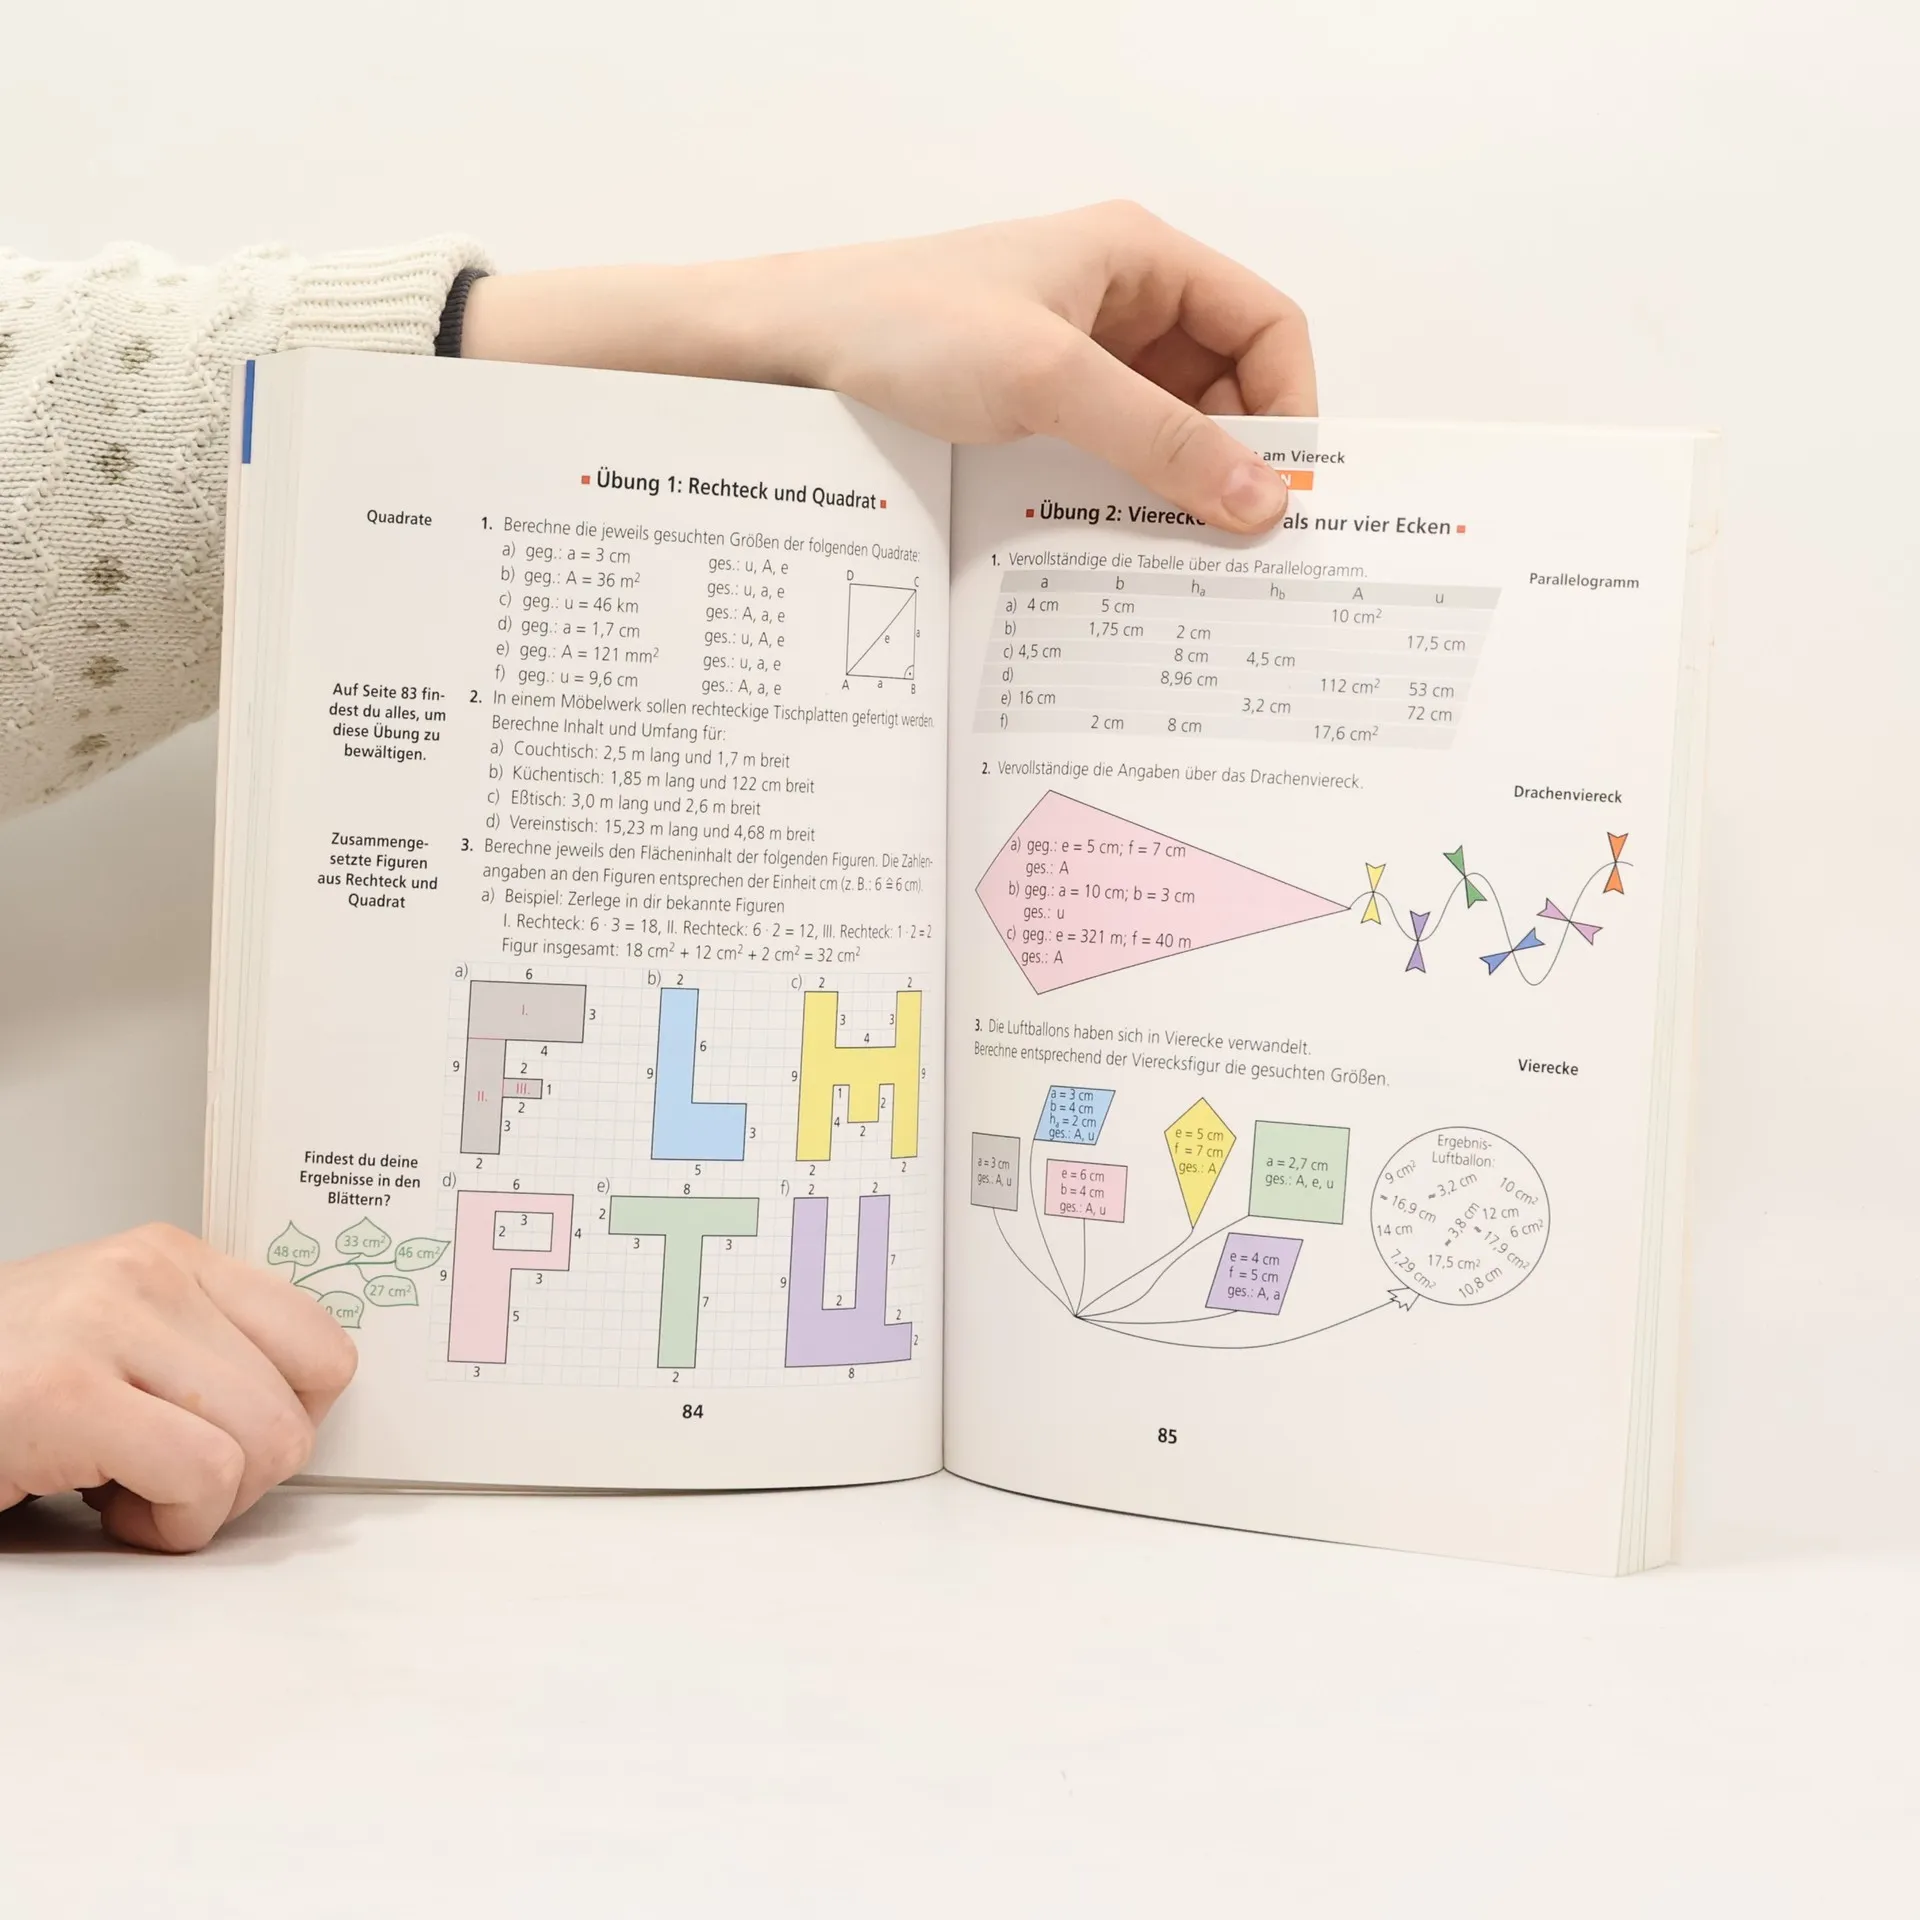 Übung 1: Rechteck und Quadrat
Quadrate
1. Berechne die jeweils gesuchten Größen der folgenden Quadrate:
a) geg.: a = 3 cm ges.: u, A, e
b) geg.: A = 36 m² ges.: u, a, e
c) geg.: u = 46 km ges.: A, a, e
d) geg.: a = 1,7 cm ges.: u, A, e
e) geg.: A = 121 mm² ges.: u, a, e
f) geg.: u = 9,6 cm ges.: A, a, e
D C
e a
A a B
Auf Seite 83 fin-
dest du alles, um
diese Übung zu
bewältigen.
2. In einem Möbelwerk sollen rechteckige Tischplatten gefertigt werden.
Berechne Inhalt und Umfang für:
a) Couchtisch: 2,5 m lang und 1,7 m breit
b) Küchentisch: 1,85 m lang und 122 cm breit
c) Eßtisch: 3,0 m lang und 2,6 m breit
d) Vereinstisch: 15,23 m lang und 4,68 m breit
Zusammenge-
setzte Figuren
aus Rechteck und
Quadrat
3. Berechne jeweils den Flächeninhalt der folgenden Figuren. Die Zahlen-
angaben an den Figuren entsprechen der Einheit cm (z. B.: 6 ≙ 6 cm).
a) Beispiel: Zerlege in dir bekannte Figuren
I. Rechteck: 6 · 3 = 18, II. Rechteck: 6 · 2 = 12, III. Rechteck: 1 · 2 = 2
Figur insgesamt: 18 cm² + 12 cm² + 2 cm² = 32 cm²
a) 6 b) 2 c) 2 2
I. 3 3 3
4 6 4
9 2 9 9 9
II. III. 1 1 2
2 4
3 3 2
2 5 2 2
Findest du deine
Ergebnisse in den
Blättern?
48 cm² 33 cm² 46 cm²
27 cm²
d) 6 e) 8 f) 2 2
3 2
2 4 3 3 7
9 3 9
5 7 2 2
2
3 2 8
84
am Viereck
N
Übung 2: als nur vier Ecken
1. Vervollständige die Tabelle über das Parallelogramm.
Parallelogramm
a b hₐ h_b A u
a) 4 cm 5 cm 10 cm²
b) 1,75 cm 2 cm 17,5 cm
c) 4,5 cm 8 cm 4,5 cm
d) 8,96 cm 112 cm² 53 cm
e) 16 cm 3,2 cm 72 cm
f) 2 cm 8 cm 17,6 cm²
2. Vervollständige die Angaben über das Drachenviereck.
Drachenviereck
a) geg.: e = 5 cm; f = 7 cm
ges.: A
b) geg.: a = 10 cm; b = 3 cm
ges.: u
c) geg.: e = 321 m; f = 40 m
ges.: A
3. Die Luftballons haben sich in Vierecke verwandelt.
Berechne entsprechend der Vierecksfigur die gesuchten Größen.
Vierecke
a = 3 cm
ges.: A, u
a = 3 cm
b = 4 cm
hₐ = 2 cm
ges.: A, u
e = 6 cm
b = 4 cm
ges.: A, u
e = 5 cm
f = 7 cm
ges.: A
a = 2,7 cm
ges.: A, e, u
e = 4 cm
f = 5 cm
ges.: A, a
Ergebnis-
Luftballon:
9 cm² ≈ 3,2 cm 10 cm²
≈ 16,9 cm 12 cm
14 cm ≈ 3,8 cm 6 cm²
≈ 17,9 cm²
7,29 cm² 17,5 cm²
10,8 cm
85